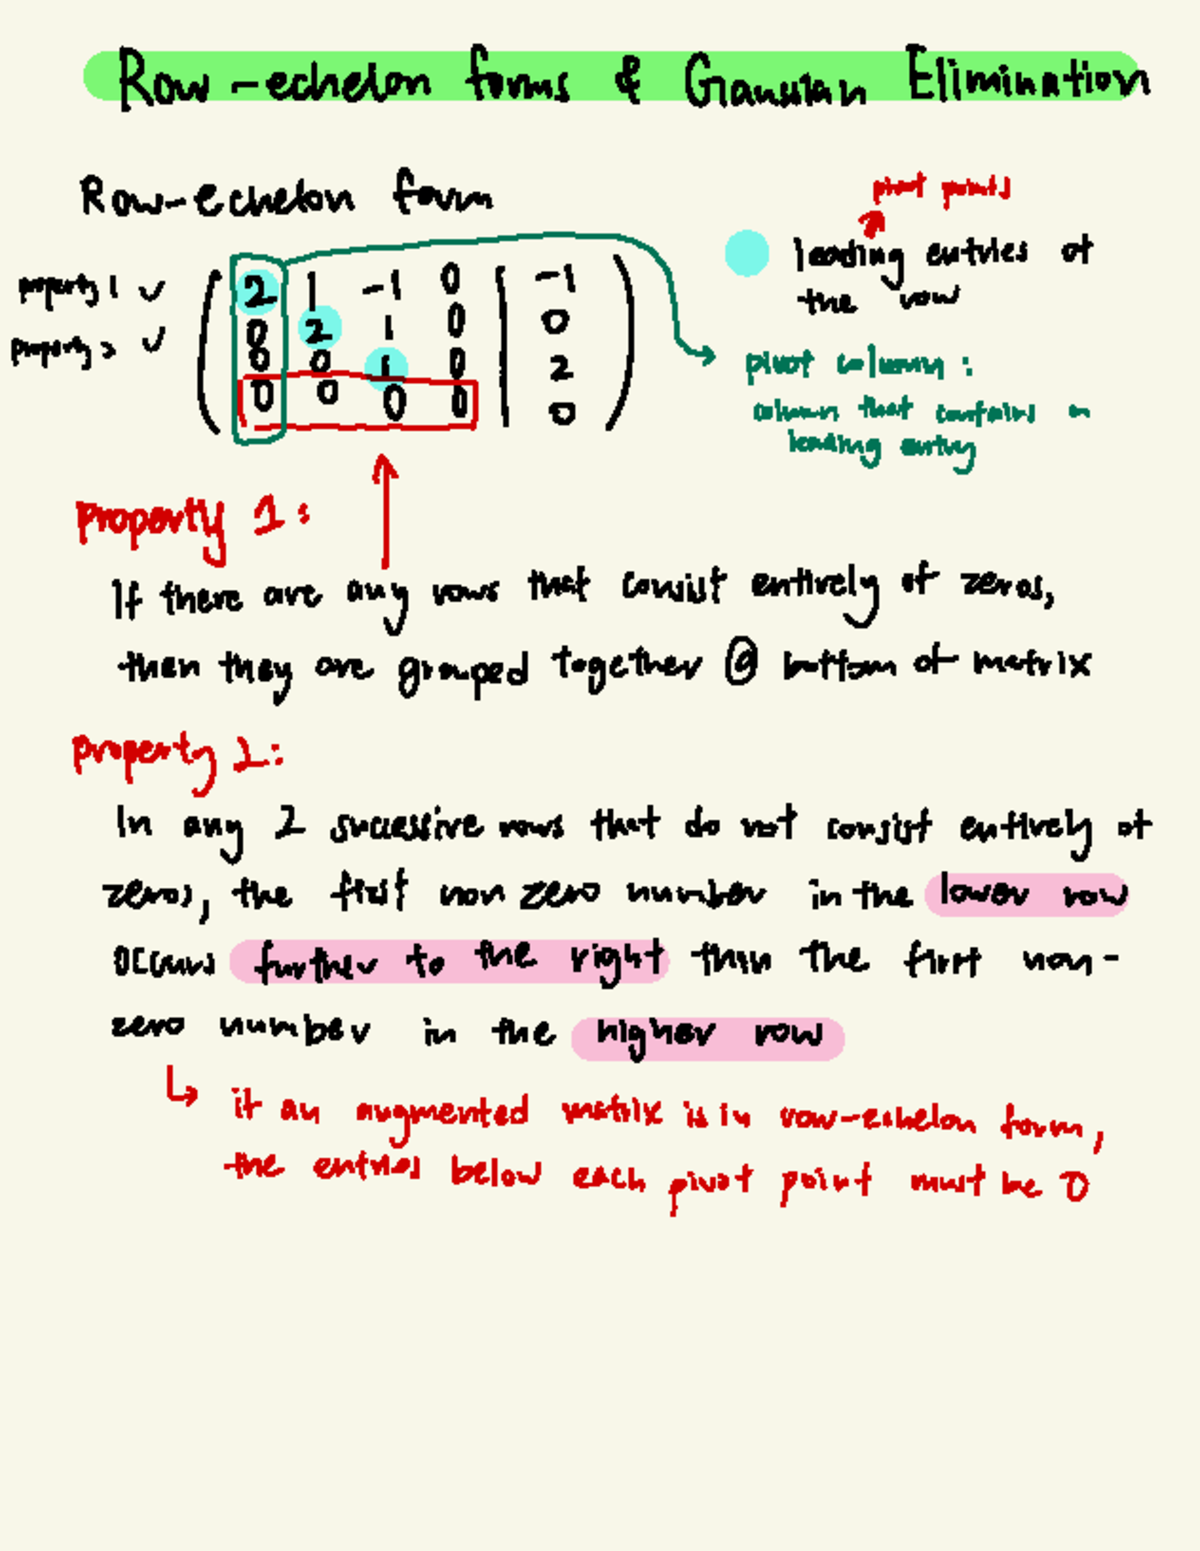 Row-echelon forms & Gaussian Elimination
Row-echelon form
pivot points
leading entries of
the row
property 1 ✓
property 2 ✓
2 1 -1 0 | -1
0 2 1 0 | 0
0 0 1 0 | 2
0 0 0 0 | 0
pivot column :
column that contains a
leading entry
Property 1:
If there are any rows that consist entirely of zeros,
then they are grouped together @ bottom of matrix
Property 2:
In any 2 successive rows that do not consist entirely of
zeros, the first non zero number in the lower row
occurs further to the right than the first non-
zero number in the higher row
↳ if an augmented matrix is in row-echelon form,
the entries below each pivot point must be 0